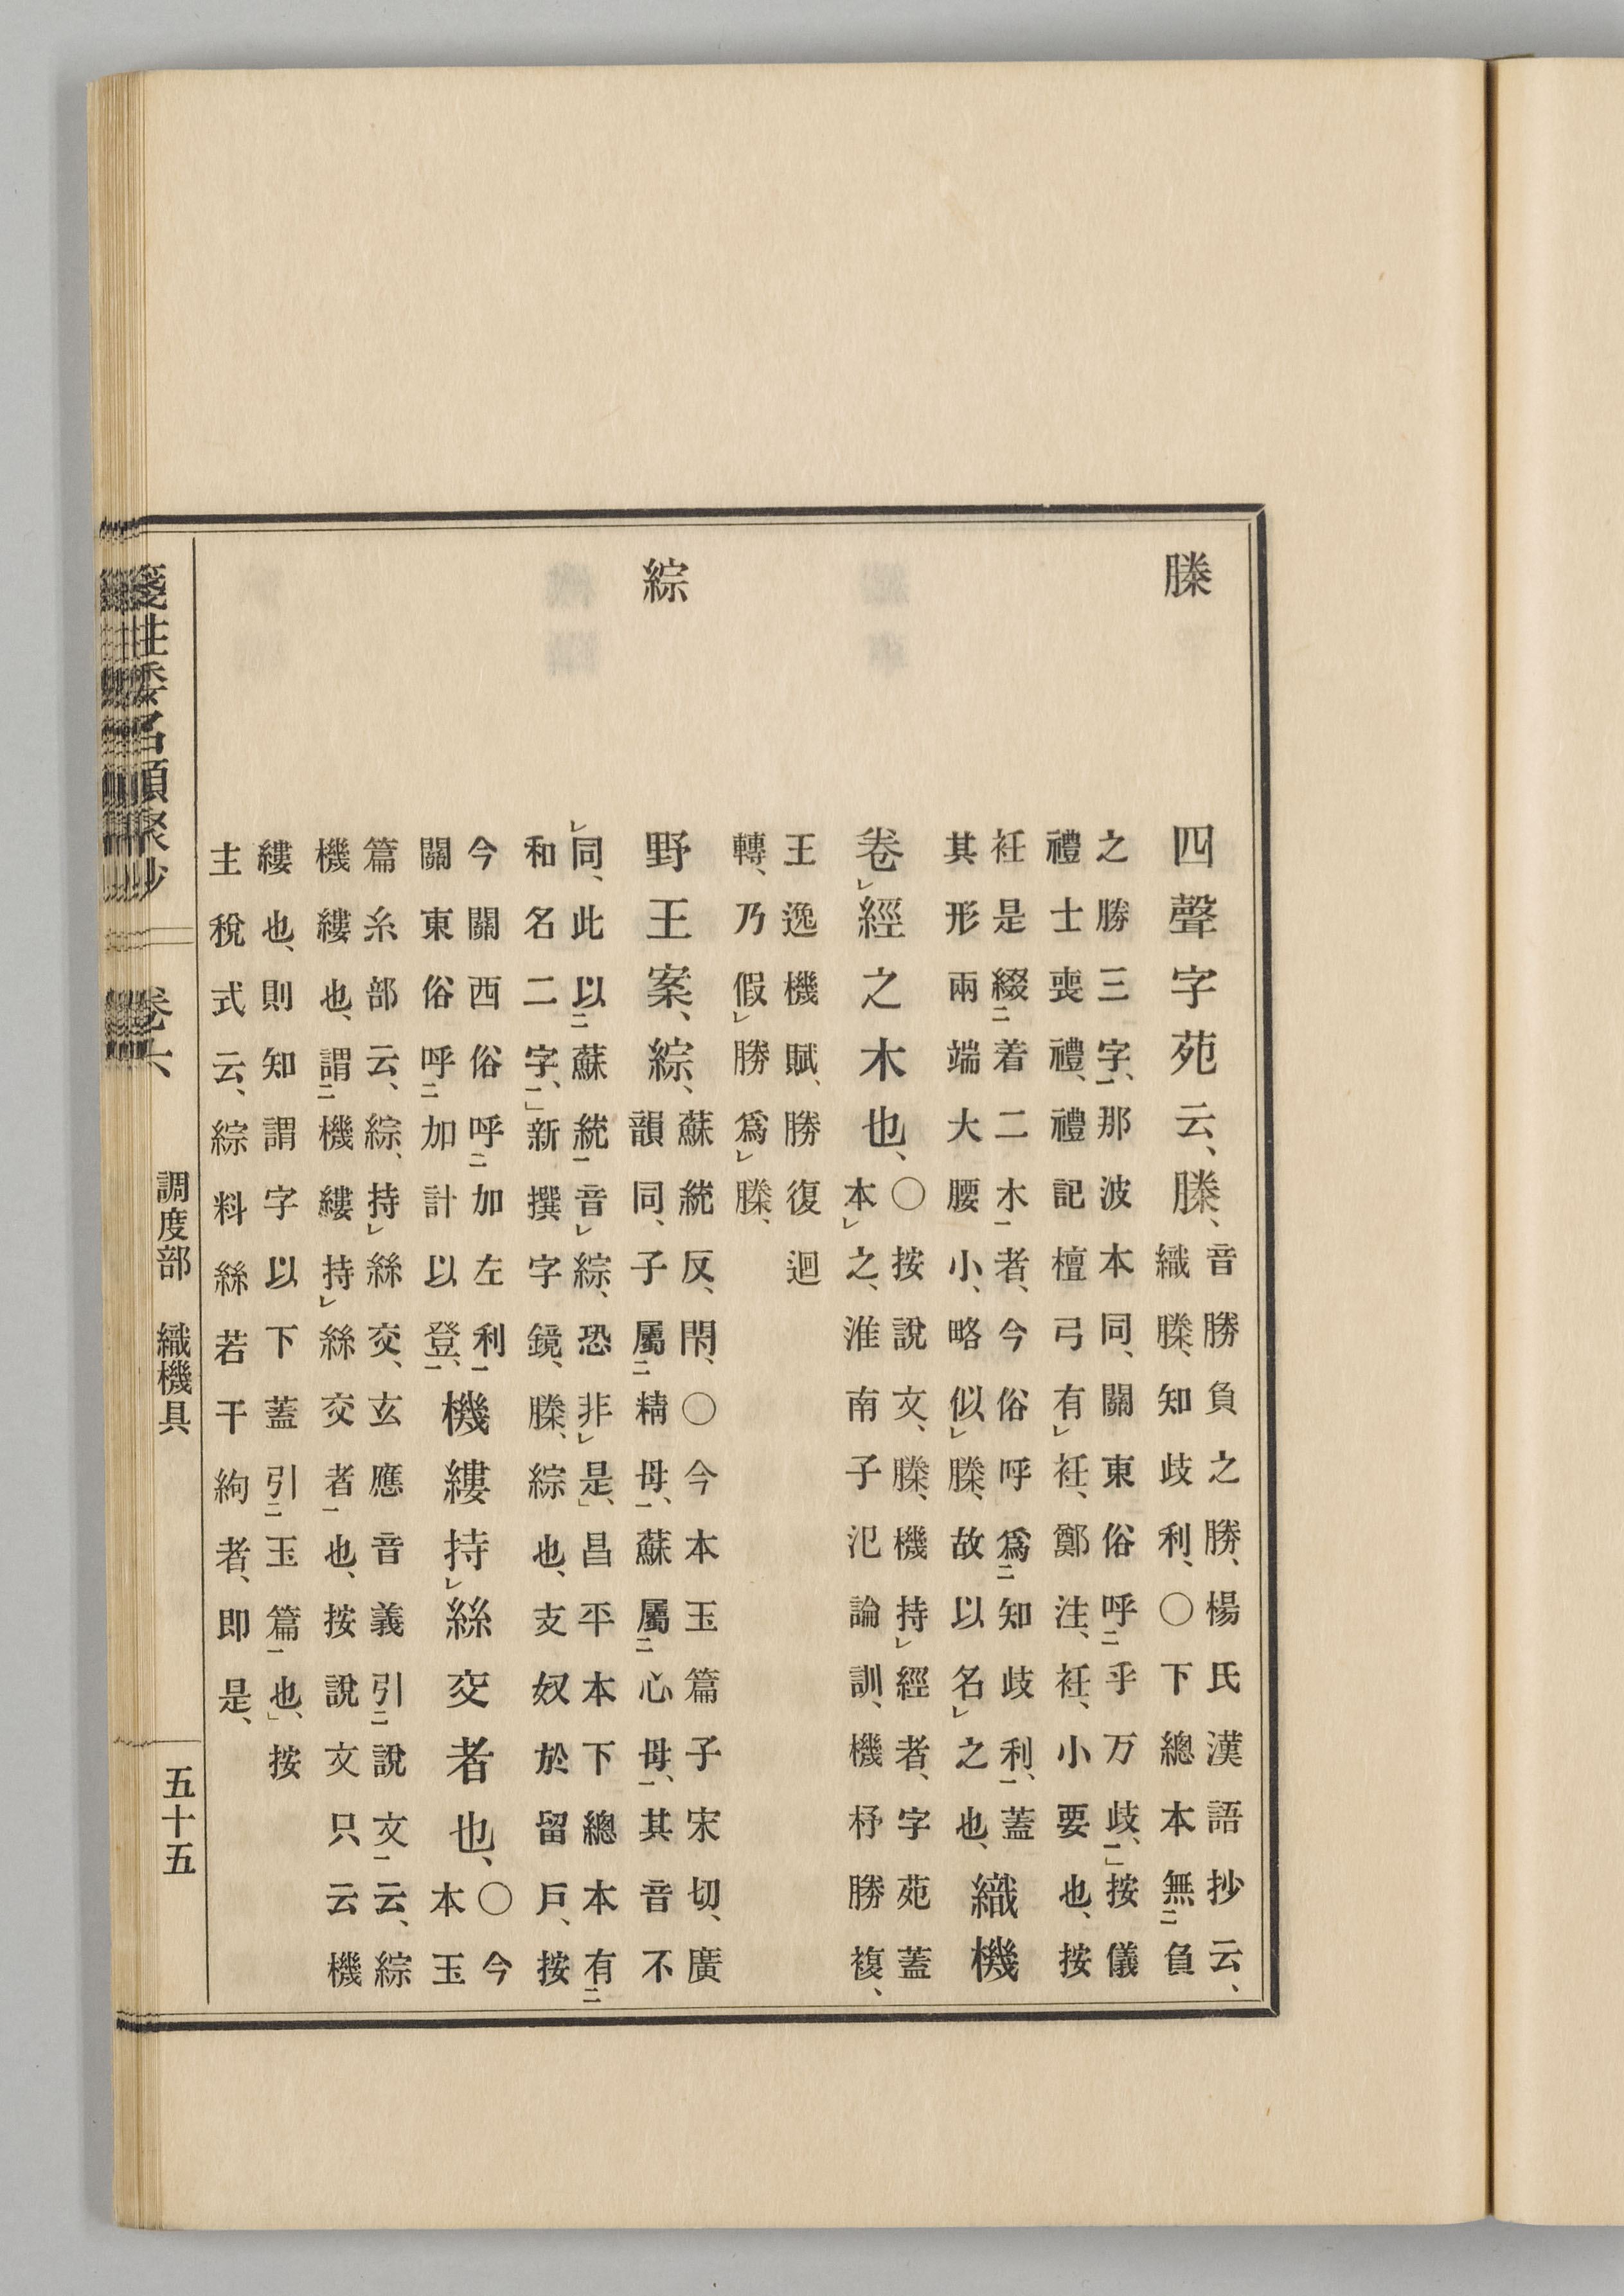 榺
四聲字苑云、榺、
音勝負之勝、楊氏漢語抄云、
織榺、知歧利、○下總本無負
之勝三字、那波本同、關東俗呼乎万歧、按儀
禮士喪禮、禮記檀弓有衽、鄭注、衽、小要也、按
衽是綴着二木者、今俗呼爲知歧利、蓋
其形兩端大腰小、略似榺、故以名之也、
織機
卷經之木也、
○按說文、榺、機持經者、字苑蓋
本之、淮南子氾論訓、機杼勝複、
王逸機賦、勝復迴
轉、乃假勝爲榺、
綜
野王案、綜、
蘇統反、閇、○今本玉篇子宋切、廣
韻同、子屬精母、蘇屬心母、其音不
同、此以蘇統音綜、恐非是、昌平本下總本有
和名二字、新撰字鏡、榺、綜也、支奴於留戶、按
今關西俗呼加左利
關東俗呼加計以登、
機縷持絲交者也、
○今
本玉
篇糸部云、綜、持絲交、玄應音義引說文云、綜
機縷也、謂機縷持絲交者也、按說文只云機
縷也、則知謂字以下蓋引玉篇也、按
主稅式云、綜料絲若干絇者、即是、
箋注倭名類聚抄 卷六 調度部 織機具 五十五